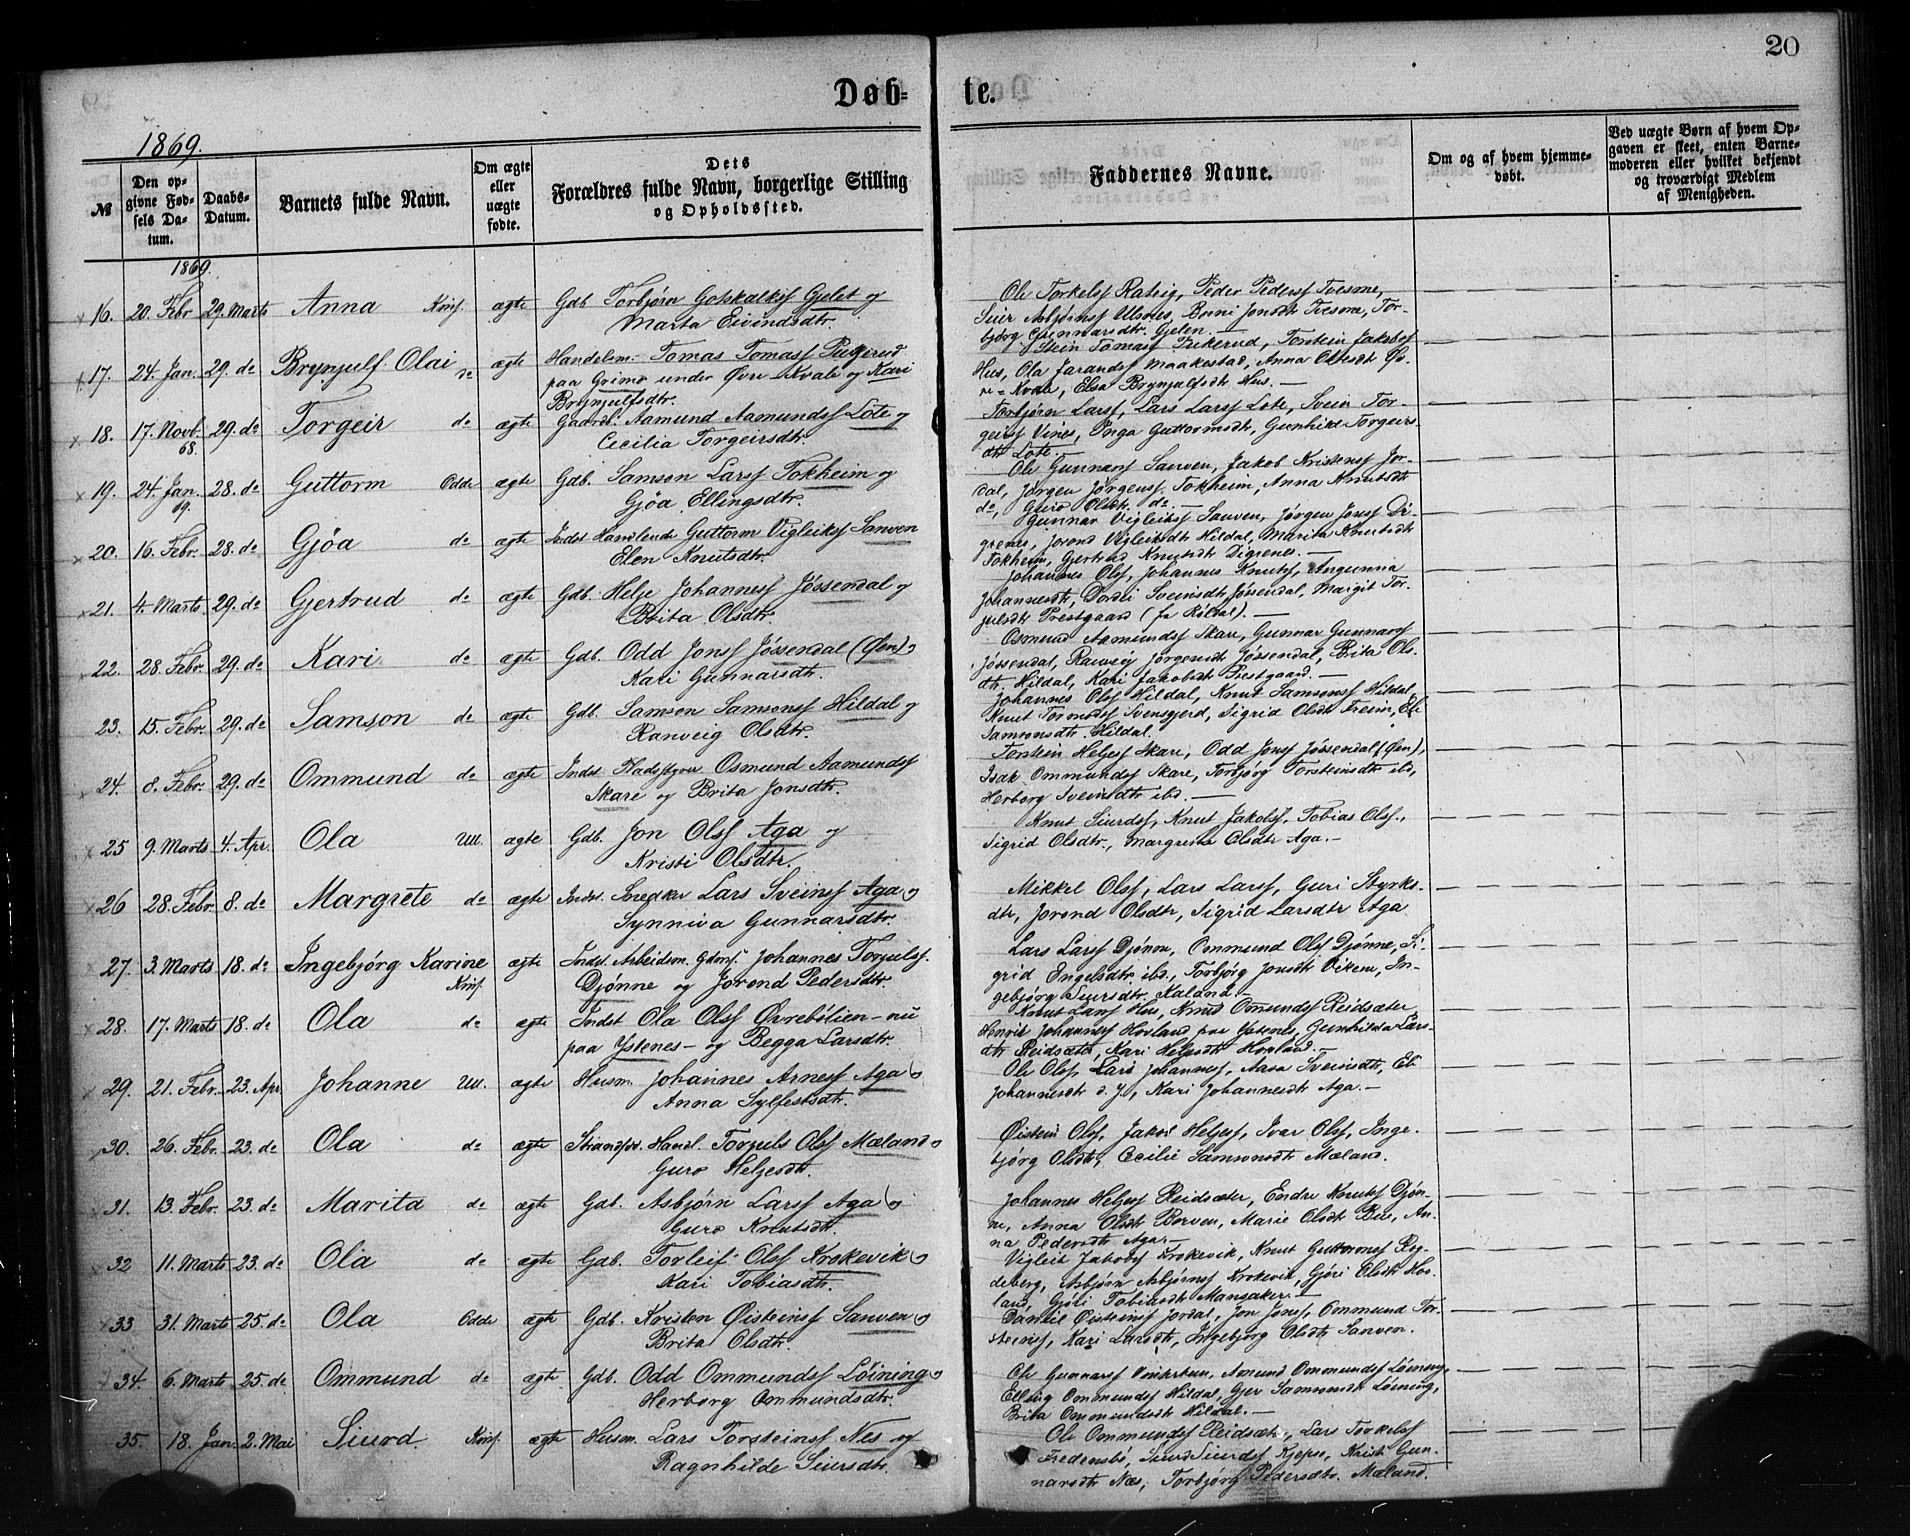 20
Døb-
te.
1869.
№
Den op-
givne Fød-
sels Da-
tum.
Daabs-
Datum.
Barnets fulde Navn.
Om ægte
eller
uægte
fødte.
Dets
Forældres fulde Navn, borgerlige Stilling
og Opholdssted.
Faddernes Navne.
Om og af hvem hjemme-
døbt.
Ved uægte Børn af hvem Op-
gaven er skeet, enten Barne-
moderen eller hvilket bekjendt
og troværdigt Medlem
af Menigheden.
1869.
16. 20. Febr 29. Marts Anna Kins. ægte Gdb. Torbjørn Gotskalks Gjelet og
Marta Eivindsdtr.
Ole Torkelsf Peder Pedersf Tvesme,
Seier Asbjørnsf Ulsnes, Jonsdtr Tvesme, Tor-
bjørg Gunnarsdtr. Gjelen. —
17. 24. Jan. 29. do Brynjulf Olai do ægte Handelsm. Tomas Tomasf
paa Grimo under Øvre Kvale og Kari
Brynjulfsdtr.
Stein Tomasf Torstein Jakobsf
Hus, Ola Jarandsf Maakestad, Anna Ottesdtr Øv-
re-Kvale, Elsa Brynjulfsdtr Hus. —
18. 17. Novb. 68. 29. do Torgeir do ægte Gaardb. Aamund Aamundsf Lote og
Cecilia Torgeirsdtr.
Torbjørn Larsf, Lars Larsf Lote, Svein Tor-
geirsf Vines, Inga Guttormsdtr, Gunhild Torgeirs-
dtr Lote —
19. 24. Jan. 69. 28. do Guttorm Odde ægte Gdb. Samson Larsf Tokheim og
Gjøa Ellingsdtr.
Ole Gunnarsf Sanven, Jakob Kristensf Jor-
dal, Jørgen Jørgensf Tokheim, Anna Knutsdtr
do, Guro Olsdtr. do —
20. 16. Febr. 28. do Gjøa do ægte Indst. Handlende Guttorm Vigleiksf Sanven
Elen Knutsdtr.
Gunnar Vigleiksf Sanven, Jørgen Jonsf Di-
grenes, Jorond Vigleiksdtr Hildal, Marita Knutsdtr
Tokheim, Gjertrud Knutsdtr Digrenes. —
21. 4. Marts 29. do Gjertrud do ægte Gdb. Helje Johannesf Jøssendal og
Brita Olsdtr.
Johannes Olsf, Johannes Knutsf, Angunna
Johannesdtr, Dordei Sveinsdtr Jøssendal, Margit Tor-
julsdtr Prestgaard (fra Røldal). —
22. 28. Febr. 29. do Kari do ægte Gdb. Odd Jonsf Jøssendal (Øen) og
Kari Gunnarsdtr.
Osmund Aamundsf Skare, Gunnar Gunnarsf
Jøssendal, Ranveig Jørgensdtr Jøssendal, Brita Ols-
dtr Hildal, Kari Jakobsdtr Prestgaard. —
23. 15. Febr. 29. do Samson do ægte Gdb. Samson Samsonsf Hildal og
Ranveig Olsdtr.
Johannes Olsf Hildal, Knut Samsonsf Hildal,
Knut Tormodsf Svensgjerd, Sigrid Olsdtr Freim, Eli
Samsonsdtr. Hildal.
24. 8. Febr. 29. do Ommund do ægte Indst. Osmund Aamundsf
Skare og Brita Jonsdtr.
Torstein Heljesf Skare, Odd Jonsf Jøssendal (Øen),
Isak Ommundsf Skare, Torbjørg Torsteinsdtr ibd,
Herborg Sveinsdtr ibd. —
25 9. Marts 4. Apr. Ola Ull. ægte Gdb. Jon Olsf Aga og
Kristi Olsdtr.
Knut Siurdsf, Knut Jakobsf, Tobias Olsf.,
Sigrid Olsdtr., Margreta Olsdtr Aga. —
26 28. Febr 8. do Margrete do ægte Indst. Snedker Lars Sveinsf Aga og
Synniva Gunnarsdtr.
Mikkel Olsf, Lars Larsf, Guri Styrks-
dtr, Jorond Olsdtr, Sigrid Larsdtr Aga
27. 3. Marts 18. do Ingebjørg Karine Kins. ægte Indst. Arbeidsm. Johannes Torjulsf.
Djønne og Jorond Pedersdtr.
Lars Larsf Djønne, Ommund Olsf Djønne, Si-
grid Engelsdtr. ibd., Torbjørg Jonsdtr Vikene, In-
gebjørg Siursdtr. Kaland. —
28. 17. Marts 18. do Ola do ægte Indst Ola Olsf Øvrebilien — nu
paa Ystenes — og Begga Larsdtr.
Knut Larsf Hus, Knud Omundsf Reidsæter
Henrik Johannesf Hovland paa Ystenes, Gunhilda Lars-
dtr Reidsæter, Kari Heljesdtr Hovland. —
29. 21. Febr. 23. Apr. Johanne Ull. ægte Husm. Johannes Arnesf Aga og
Anna Sylfestsdtr.
Ole Olsf, Lars Johannesf, Aasa Sveinsdtr, Eli
Johannesdtr d. y., Kari Johannesdtr Aga. —
30. 26. Febr. 23. do Ola do ægte Strandsid. Handl. Torjuls Olsf Mæland og
Guro Heljesdtr.
Øistein Olsf, Jakob Heljesf, Ivar Olsf, Inge-
bjørg Olsdtr, Cecilie Samsonsdtr Mæland.
31. 13. Febr. 23. do Marita do ægte Gdb. Asbjørn Larsf Aga og
Guro Knutsdtr.
Johannes Heljesf Reidsæter, Endre Knutsf Djøn-
ne, Anna Olsdtr Borven, Marie Olsdtr Bue, An-
na Pedersdtr Aga. —
32 11. Marts 23. do Ola do ægte Gdb. Torleif Olsf Krokevik og
Kari Tobiasdtr.
Vigleik Jakobsf Krokevik, Knut Guttormsf Reg-
deberg, Asbjørn Asbjørnsf Krokevik, Gjøri Olsdtr Hov-
land, Gjøri Tobiasdtr Mansaker. —
33 31. Marts 25. do Ola Odde ægte Gdb. Kristen Øisteinsf Sanven og
Brita Olsdtr.
Daniel Øisteinsf Jordal, Jon Jonsf, Ommund Tor-
steinsf, Kari Larsdtr, Ingebjørg Olsdtr Sanven.
34. 6. Marts 25. do Ommund do ægte Gdb. Odd Ommundsf Løining og
Herborg Ommundsdtr.
Ole Gunnarsf Amund Ommundsf Løining,
Elling Ommundsf Hildal, Gjer Samsonsdtr Løining,
Brita Ommundsdtr Hildal. —
35. 18. Jan. 2. Mai Siurd. Kins. ægte Husm. Lars Torsteinsf Nes og
Ragnhilde Siursdtr.
Ole Ommundsf Reidsæter, Lars Torkelsf
Fredensbø, Siurd Siurdsf Kjepse, Kristi Gun-
narsdtr Næs, Torbjørg Pedersdtr. Mæland.